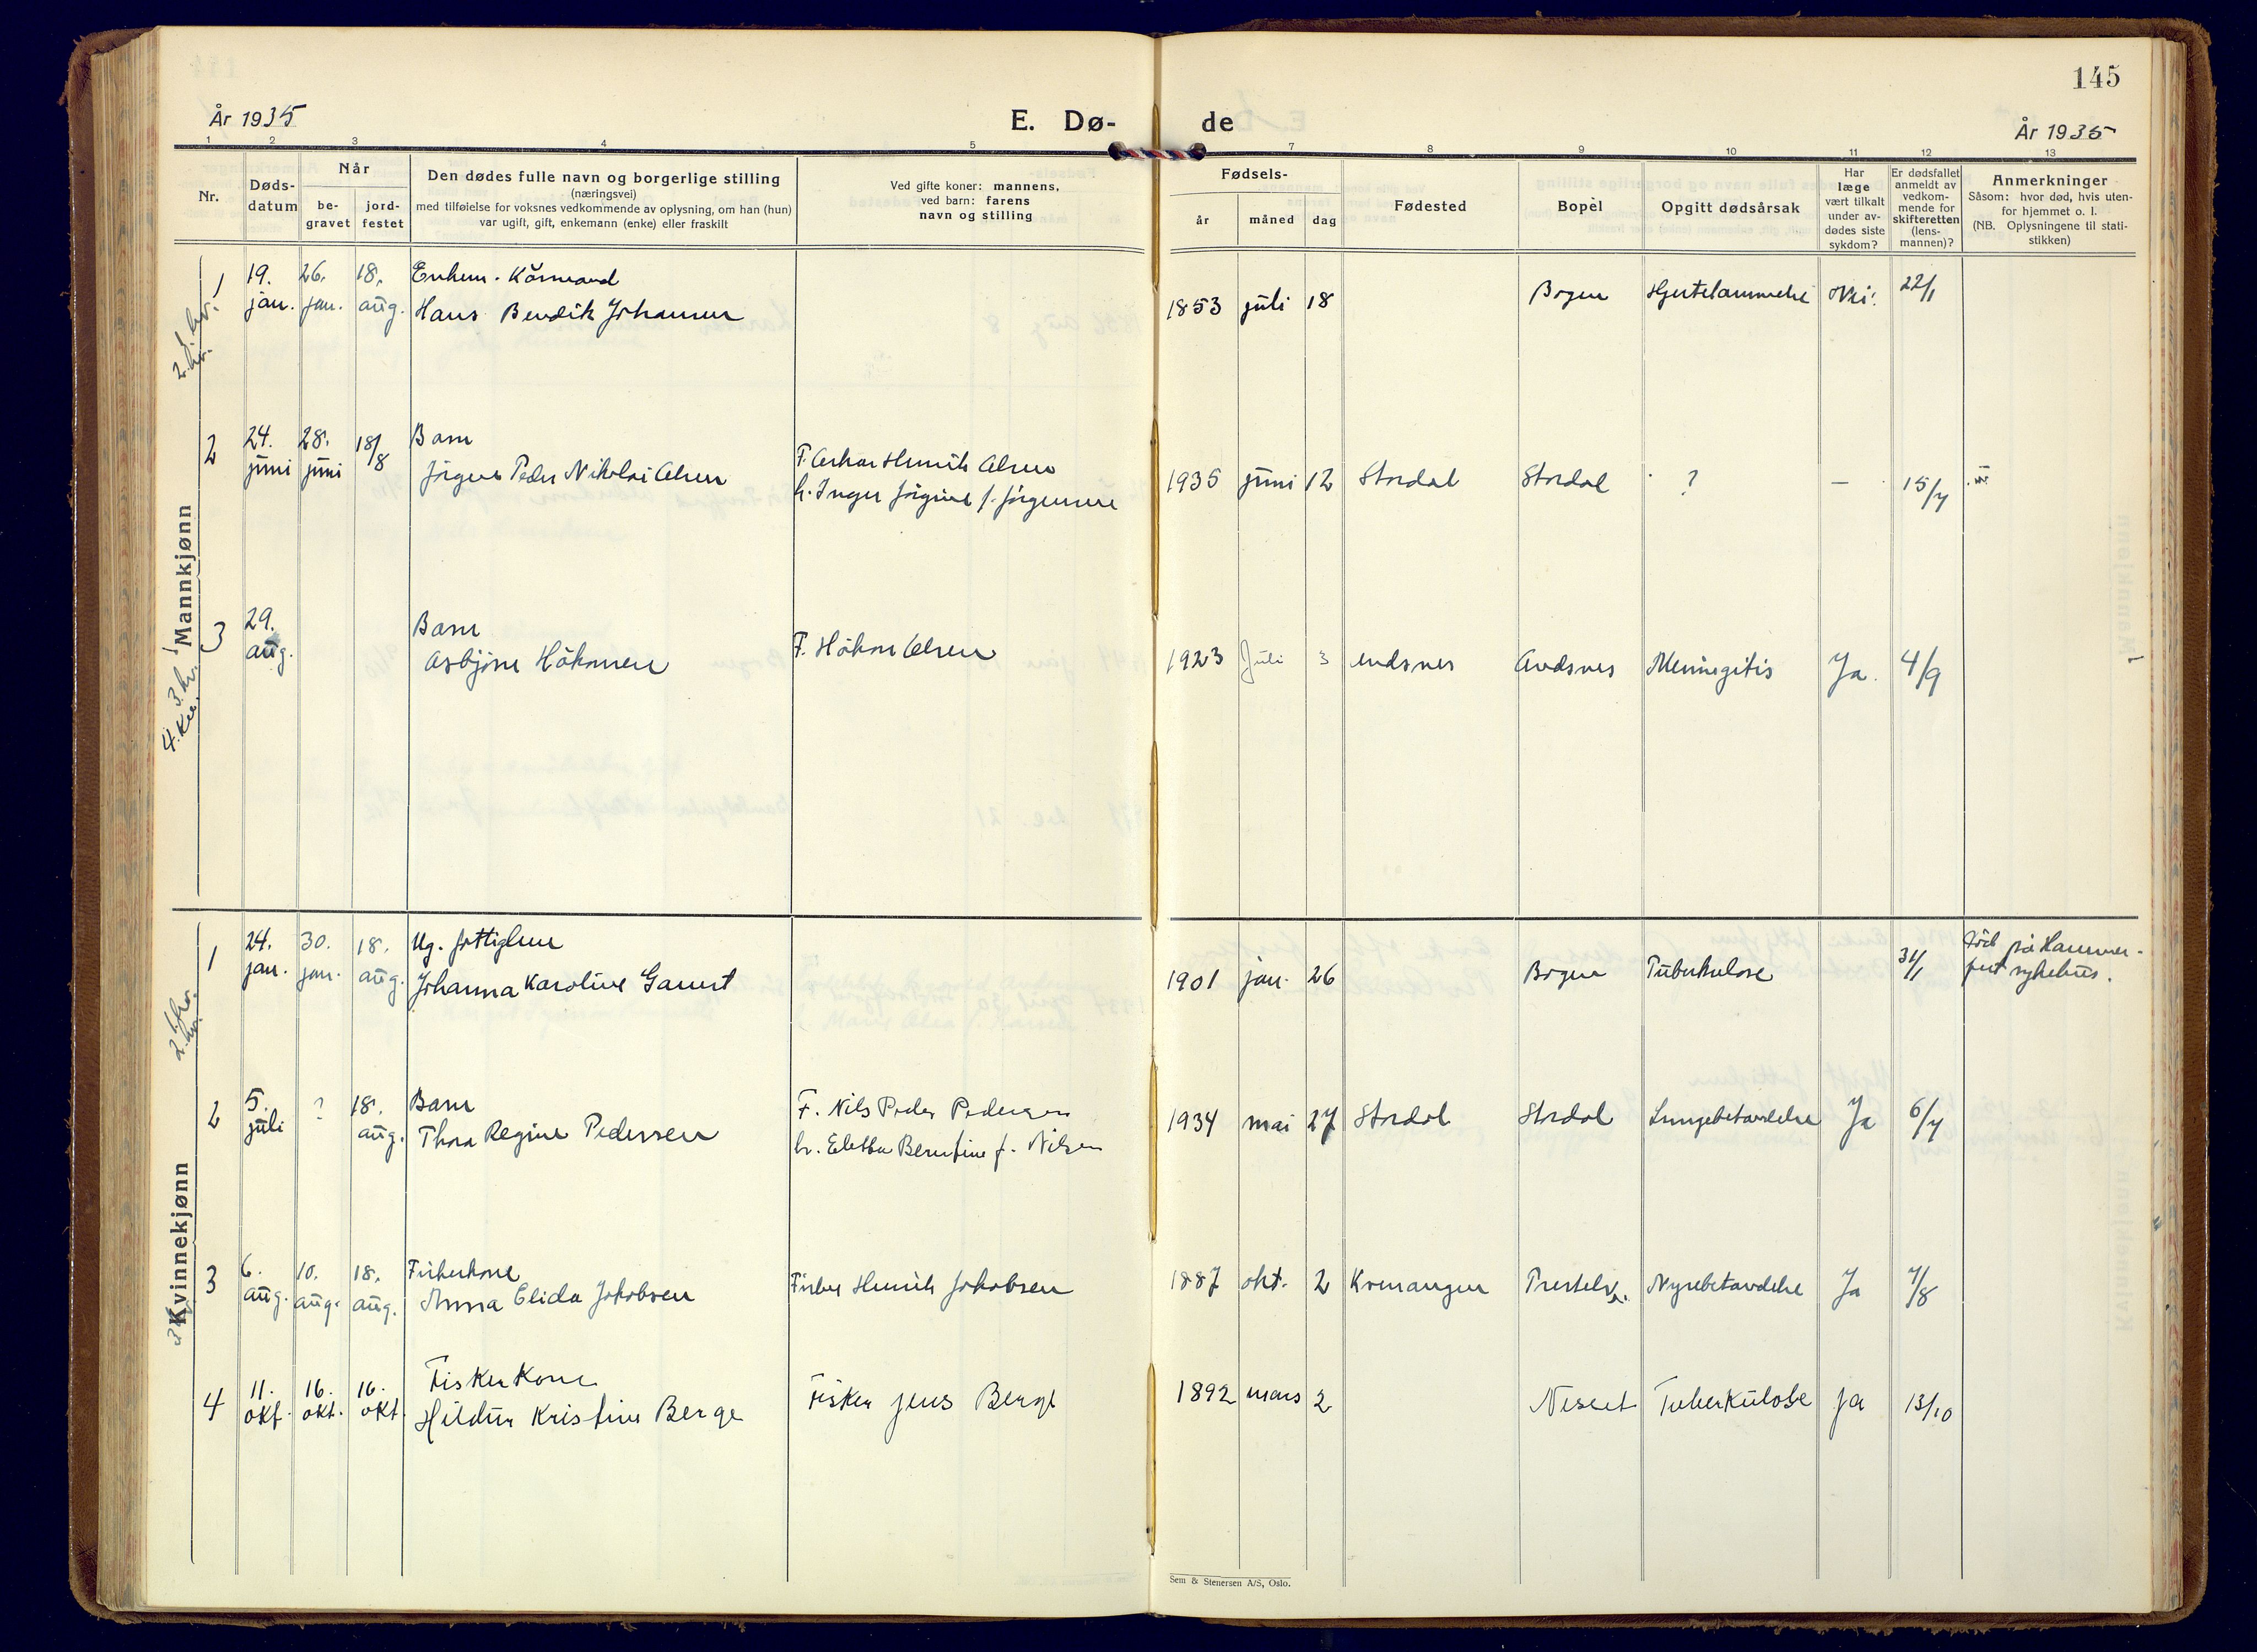 145
År 1935
E. Dø-
de
År 1935
1 2 3 4 5 7 8 9 10 11 12 13
Nr.
Døds-
datum
Når
be-
gravet
jord-
festet
Den dødes fulle navn og borgerlige stilling
(næringsvei)
med tilføielse for voksnes vedkommende av oplysning, om han (hun)
var ugift, gift, enkemann (enke) eller fraskilt
Ved gifte koner: mannens,
ved barn: farens
navn og stilling
Fødsels-
år
måned
dag
Fødested
Bopèl
Opgitt dødsårsak
Har
læge
vært tilkalt
under av-
dødes siste
sykdom?
Er dødsfallet
anmeldt av
vedkom-
mende for
skifteretten
(lens-
mannen)?
Anmerkninger
Såsom: hvor død, hvis uten-
for hjemmet o. l.
(NB. Oplysningene til stati-
stikken)
Mannkjønn
1
19.
jan.
26.
jan.
18.
aug.
Hans Bendik Johansen
1853 juli 18
Bogen
Hjertelammelse
Nei.
22/1
2
24.
juni
28.
juni
18/8
Barn
Jörgen Peder Nikolai Olsen
1935 juni 12
Stordal
Stordal
?
—
15/7
3
29.
aug.
Barn
Asbjörn Håkonsen
F. Håkon Olsen
1923 Juli 3
Meningitis
Ja.
4/9
Kvinnekjønn
1
24.
jan.
30.
jan.
18.
aug.
Johanna Karoline
1901 jan. 26
Bogen
Tuberkulose
31/1
Död på Hammer-
fest sykehus.
2
5.
juli
?
18.
aug.
Barn
Thora Regine Pedersen
F. Nils Peder Pedersen
1934 mai 27
Stordal
Stordal
Lungebetendelse
Ja
6/7
3
6.
aug.
10.
aug.
18.
aug.
Fiskerkone
Anna Elida Jakobsen
Fisker Henrik Jakobsen
1887 okt. 2
Kvenangen
Nyrebetendelse
Ja
7/8
4
11.
okt.
16.
okt.
16.
okt.
Fiskerkone
Hildur Kristine Berge
Fisker Jens Berge
1892 mars 2
Neset
Tuberkulose
Ja
13/10
Sem & Stenersen A/S, Oslo.